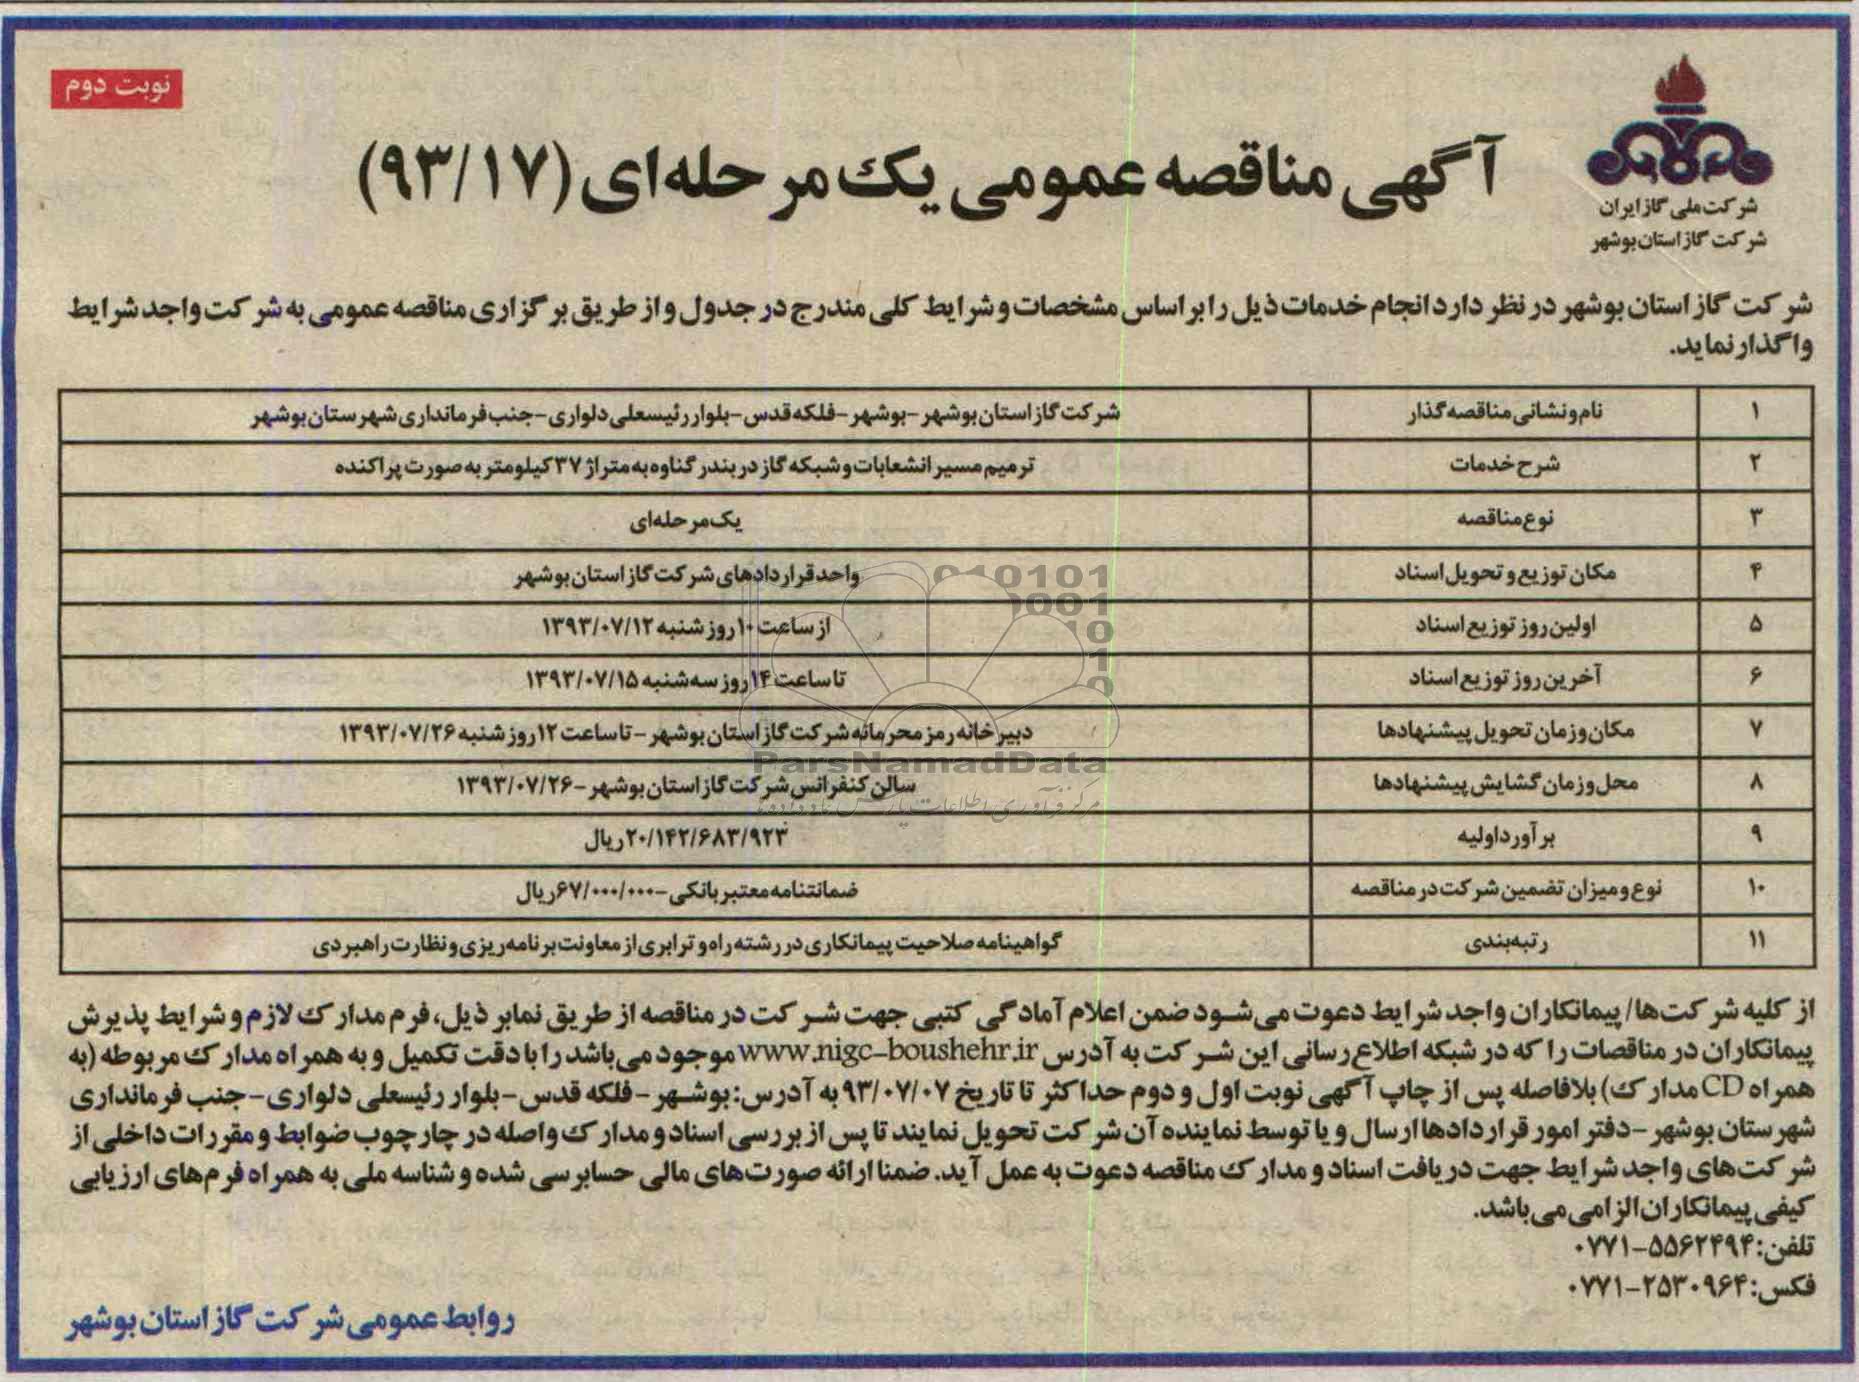 نوبت دوم
شرکت ملی گاز ایران
شرکت گاز استان بوشهر
آگهی مناقصه عمومی یک مرحله‌ای (۹۳/۱۷)
شرکت گاز استان بوشهر در نظر دارد انجام خدمات ذیل را بر اساس مشخصات و شرایط کلی مندرج در جدول و از طریق برگزاری مناقصه عمومی به شرکت واجد شرایط
واگذار نماید.
۱ نام و نشانی مناقصه گذار شرکت گاز استان بوشهر - بوشهر - فلکه قدس - بلوار رئیسعلی دلواری - جنب فرمانداری شهرستان بوشهر
۲ شرح خدمات ترمیم مسیر انشعابات و شبکه گاز در بندر گناوه به متراژ ۳۷ کیلومتر به صورت پراکنده
۳ نوع مناقصه یک مرحله‌ای
۴ مکان توزیع و تحویل اسناد واحد قراردادهای شرکت گاز استان بوشهر
۵ اولین روز توزیع اسناد از ساعت ۱۰ روز شنبه ۱۳۹۳/۰۷/۱۲
۶ آخرین روز توزیع اسناد تا ساعت ۱۴ روز سه شنبه ۱۳۹۳/۰۷/۱۵
۷ مکان و زمان تحویل پیشنهادها دبیرخانه رمز محرمانه شرکت گاز استان بوشهر - تا ساعت ۱۲ روز شنبه ۱۳۹۳/۰۷/۲۶
۸ محل و زمان گشایش پیشنهادها سالن کنفرانس شرکت گاز استان بوشهر - ۱۳۹۳/۰۷/۲۶
۹ برآورد اولیه ۲۰/۱۴۲/۶۸۳/۹۲۳ ریال
۱۰ نوع و میزان تضمین شرکت در مناقصه ضمانتنامه معتبر بانکی - ۶۷/۰۰۰/۰۰۰ ریال
۱۱ رتبه‌بندی گواهینامه صلاحیت پیمانکاری در رشته راه و ترابری از معاونت برنامه ریزی و نظارت راهبردی
از کلیه شرکت‌ها/ پیمانکاران واجد شرایط دعوت می‌شود ضمن اعلام آمادگی کتبی جهت شرکت در مناقصه از طریق نمابر ذیل، فرم مدارک لازم و شرایط پذیرش
پیمانکاران در مناقصات را که در شبکه اطلاع رسانی این شرکت به آدرس www.nigc-boushehr.ir موجود می‌باشد را با دقت تکمیل و به همراه مدارک مربوطه (به
همراه CD مدارک) بلافاصله پس از چاپ آگهی نوبت اول و دوم حداکثر تا تاریخ ۹۳/۰۷/۰۷ به آدرس: بوشهر - فلکه قدس - بلوار رئیسعلی دلواری - جنب فرمانداری
شهرستان بوشهر - دفتر امور قراردادها ارسال و یا توسط نماینده آن شرکت تحویل نمایند تا پس از بررسی اسناد و مدارک واصله در چارچوب ضوابط و مقررات داخلی از
شرکت‌های واجد شرایط جهت دریافت اسناد و مدارک مناقصه دعوت به عمل آید. ضمنا ارائه صورت‌های مالی حسابرسی شده و شناسه ملی به همراه فرم‌های ارزیابی
کیفی پیمانکاران الزامی می باشد.
تلفن: ۵۵۶۲۴۹۴-۰۷۷۱
فکس: ۲۵۳۰۹۶۴-۰۷۷۱
روابط عمومی شرکت گاز استان بوشهر
ParsNamadData
مرکز فرآوری اطلاعات پارس نماد داده‌ها